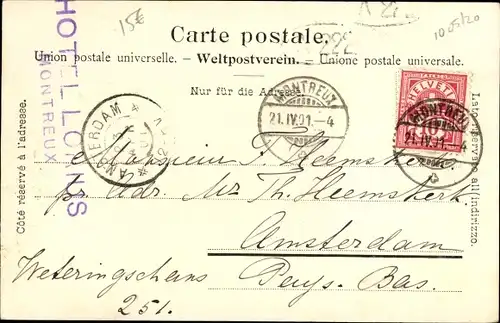 15€
10/05/20
222
Carte postale.
Union postale universelle. – Weltpostverein. – Unione postale universale.
Nur für die Adresse.
HOTEL LORIUS
MONTREUX
Côté réservé à l'adresse.
Lato riservato all'indirizzo.
AMSTERDAM
MONTREUX
21.IV.01.–4
HELVETIA
10
MONTREUX
21.IV.01.–4
Monsieur F. Heemskerk
par Adr. Mr. Th. Heemskerk
Amsterdam
Weteringschans
Pays-Bas.
251.